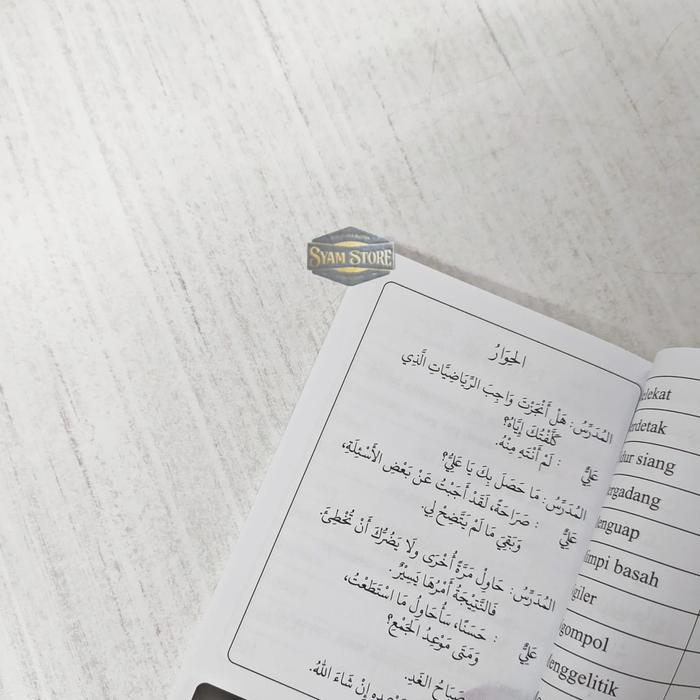 SYAM STORE
الحِوَارُ
المُدَرِّسُ: هَلْ أَنْجَزْتَ وَاجِبَ الرِّيَاضِيَّاتِ الَّذِي
كَلَّفْتُكَ إِيَّاهُ؟
عَلِيٌّ : لَمْ أَنْتَهِ مِنْهُ.
المُدَرِّسُ: مَا حَصَلَ بِكَ يَا عَلِيُّ؟
عَلِيٌّ : صَرَاحَةً، لَقَدْ أَجَبْتُ عَنْ بَعْضِ الأَسْئِلَةِ،
وَبَقِيَ مَا لَمْ يَتَّضِحْ لِي.
المُدَرِّسُ: حَاوِلْ مَرَّةً أُخْرَى وَلَا يَضُرُّكَ أَنْ تُخْطِئَ.
فَالنَّتِيجَةُ أَمْرُهَا يَسِيْرٌ.
عَلِيٌّ : حَسَنًا، سَأُحَاوِلُ مَا اسْتَطَعْتُ،
وَمَتَى مَوْعِدُ الجَمْعِ؟
صَبَاحُ الغَدِ.
إِنْ شَاءَ اللهُ.
elekat
erdetak
dur siang
ergadang
enguap
impi basah
giler
gompol
enggelitik